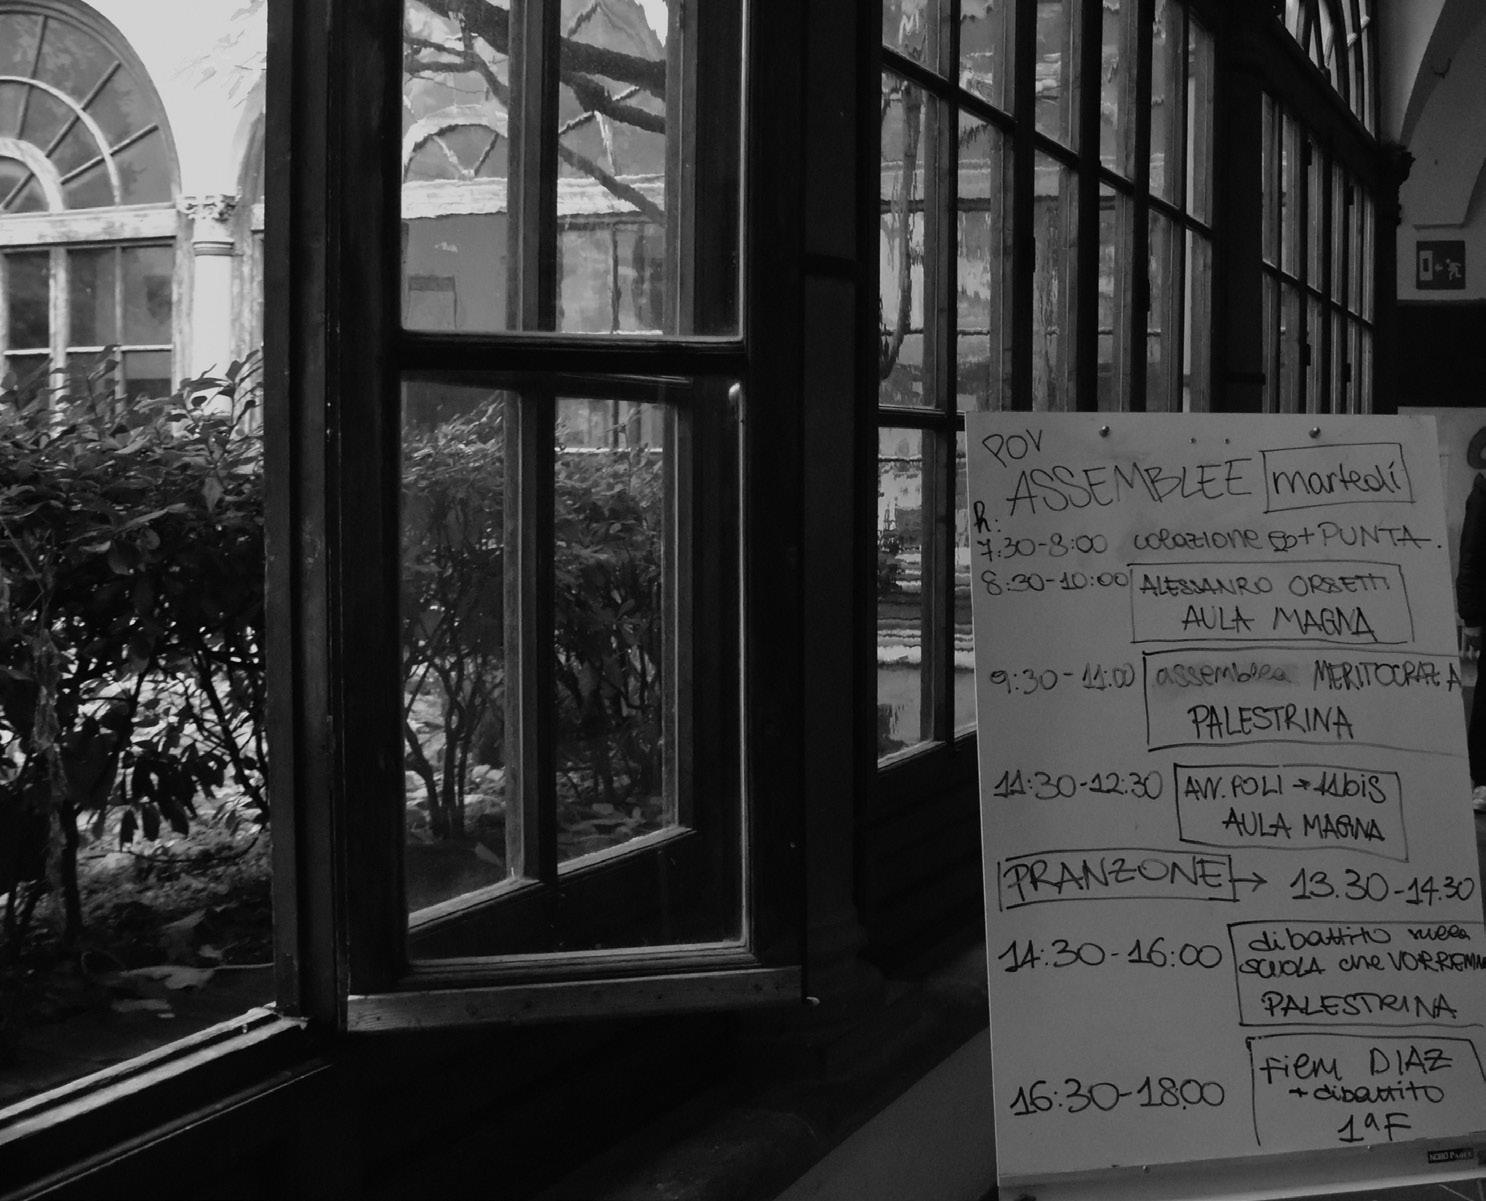 POV
ASSEMBLEE martedì
h:
7:30-8:00 colazione + PUNTA.
8:30-10:00 ALESSANRO ORSETTI
AULA MAGNA
9:30-11:00 assemblea MERITOCRAZIA
PALESTRINA
11:30-12:30 AVV. POLI → 11bis
AULA MAGNA
PRANZONE → 13.30-14.30
14:30-16:00 dibattito
SCUOLA che VORREMM
PALESTRINA
16:30-18.00 FiLM DIAZ
+ dibattito
1ªF
NOBO